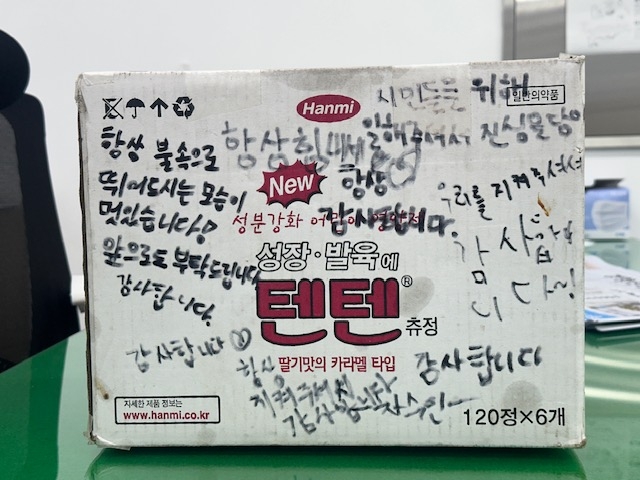 Hanmi
시민들을 위해
일반의약품
항상 불속으로
뛰어드시는 모습이
멋있습니다!
앞으로도 부탁드립니다
감사합니다.
항상 힘내세
일해주셔서 진심을 담아
항상
감사합니다.
우리를 지켜주셔서
감사합
니다~!
New
성분강화 어린이영양제
성장·발육에
텐텐®
츄정
딸기맛의 카라멜 타입
감사합니다
항상
지켜주셔서
감사합니다
감사합니다
자세한 제품 정보는
www.hanmi.co.kr
120정×6개